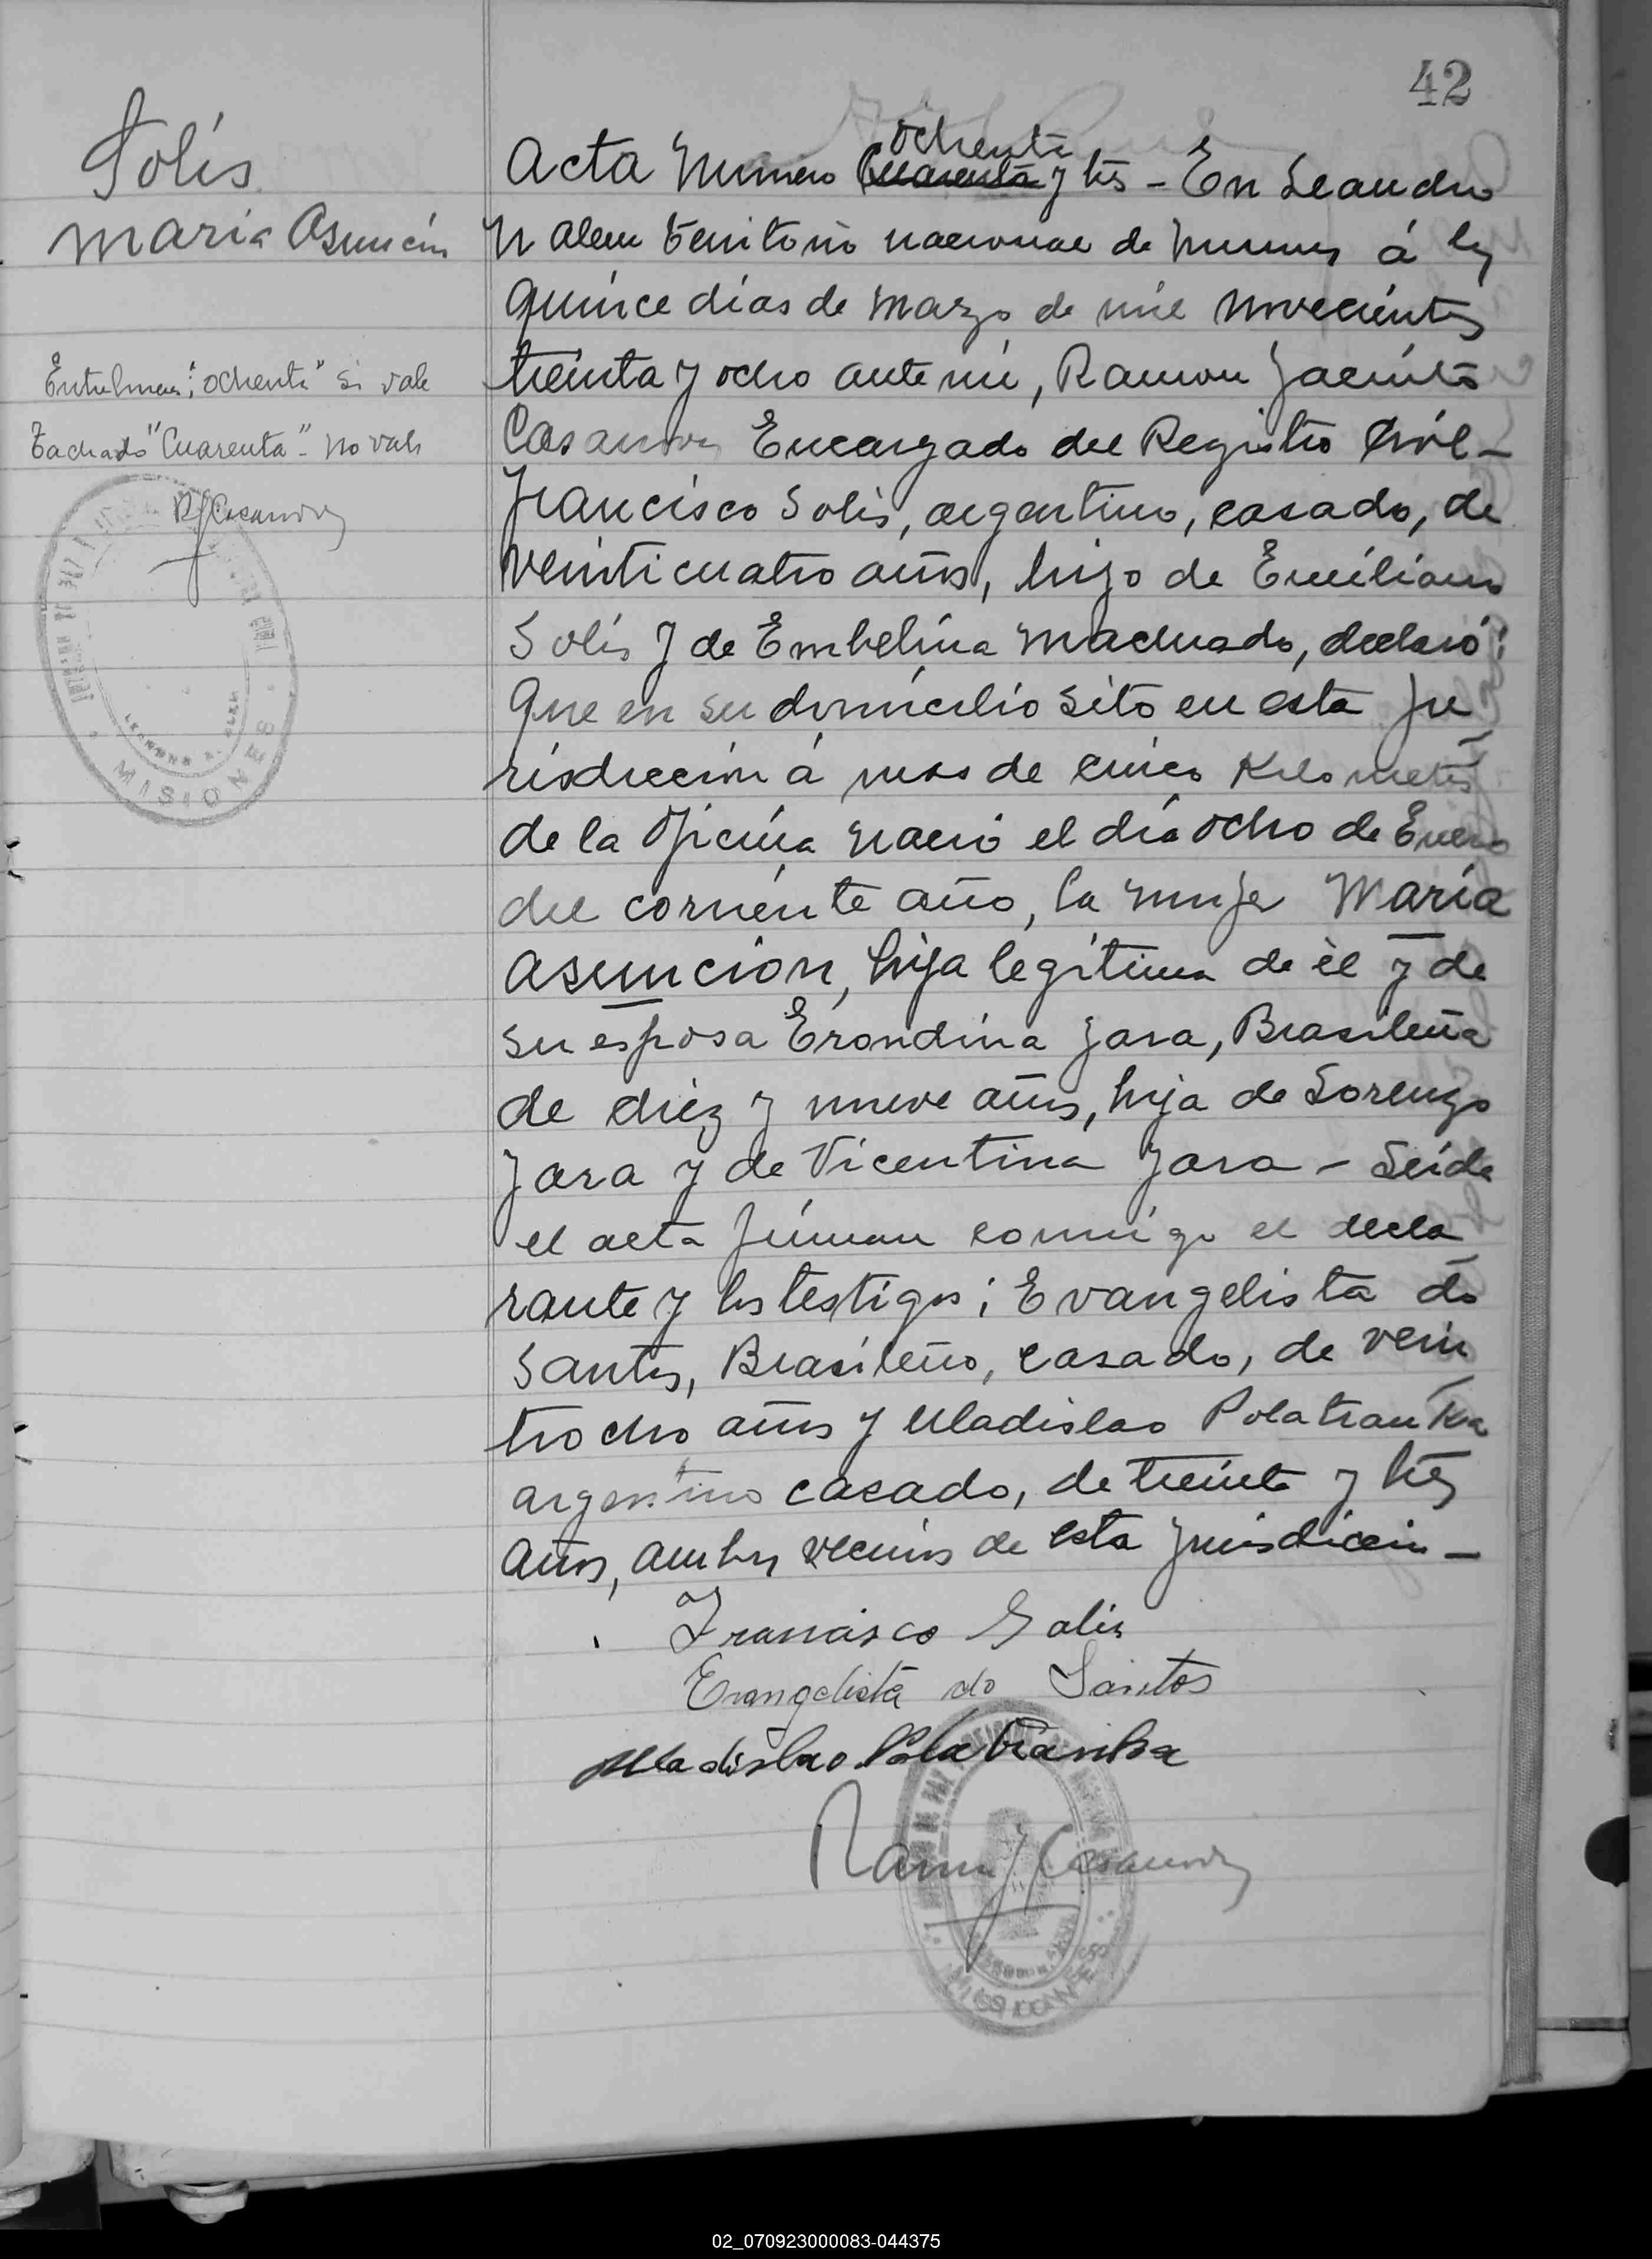 42
Solís
Maria Asunción
Entrelineas: "ochenta" si vale
Tachado "Cuarenta" - no vale
R J Casanova
MISIONES
Acta Numero Cuarenta ochenta y tres - En Leandro
N Alem territorio nacional de Misiones á los
quince dias de Marzo de mil novecientos
treinta y ocho ante mi, Ramon Jacinto
Casanova Encargado del Registro Civil -
Francisco Solis, argentino, casado, de
veinticuatro años, hijo de Emiliano
Solis y de Embelina Machuado, declaró:
Que en su domicilio sito en esta ju
risdiccion a mas de cinco Kilometros
de la Oficina nació el día ocho de Enero
del corriente año, la mujer María
Asuncion, hija legitima de él y de
su esposa Erondina Jara, Brasileña
de diez y nueve años, hija de Lorenzo
Jara y de Vicentina Jara - Leida
el acta firman conmigo el decla
rante y los testigos: Evangelista do
Santos, Brasileño, casado, de vein
tiocho años y Uladislao Polatranka
argentino casado, de treinta y tres
años, ambos vecinos de esta jurisdiccion -
Francisco Solis
Evangelista do Santos
Uladislao Polatranka
Ramon J Casanova
MISIONES
02_070923000083-044375